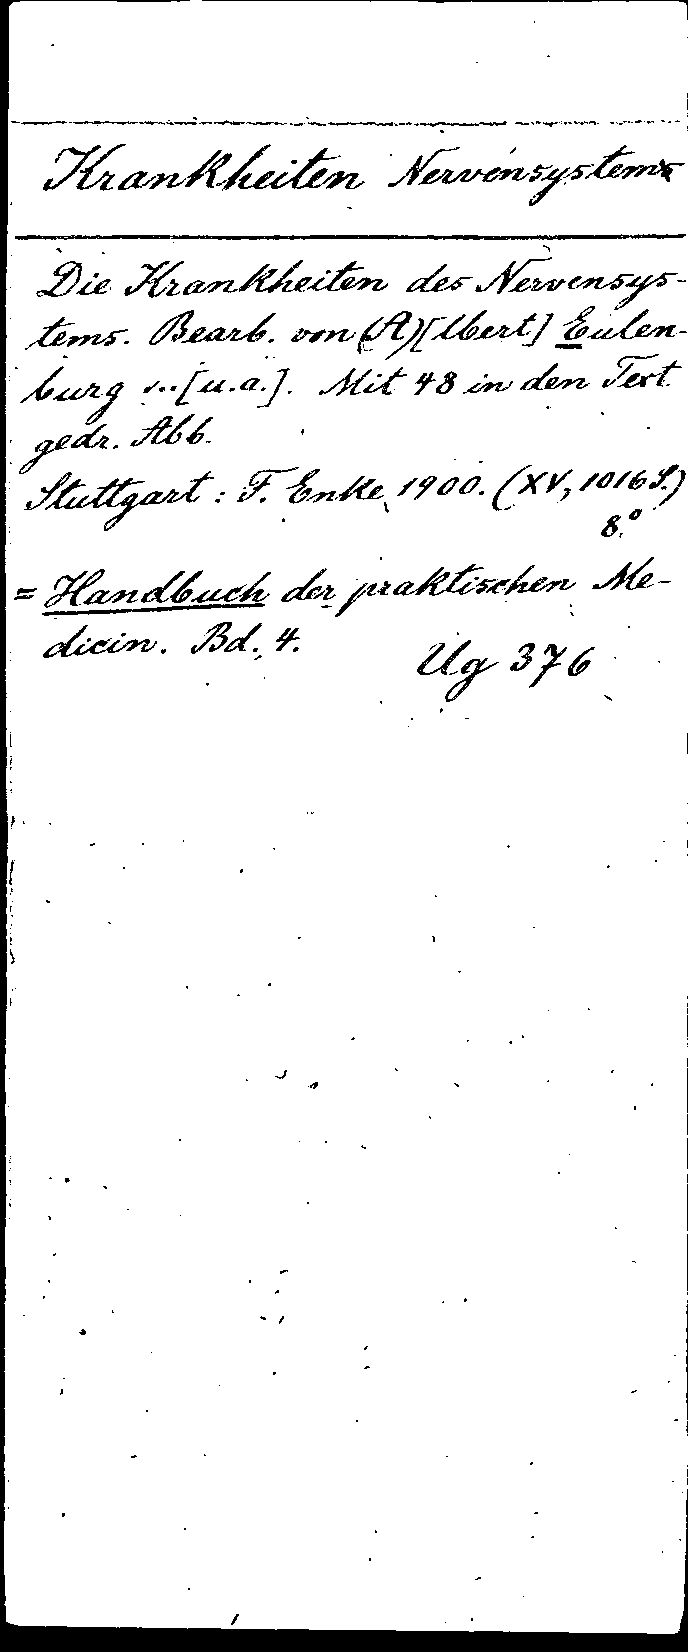 Krankheiten Nervensystems
Die Krankheiten des Nervensys-
tems. Bearb. von (A)[lbert] Eulen-
burg ... [u.a.]. Mit 48 in den Text
gedr. Abb.
Stuttgart: F. Enke 1900. (XV, 1016 S.)
8°.
= Handbuch der praktischen Me-
dicin. Bd. 4.
Ug 376